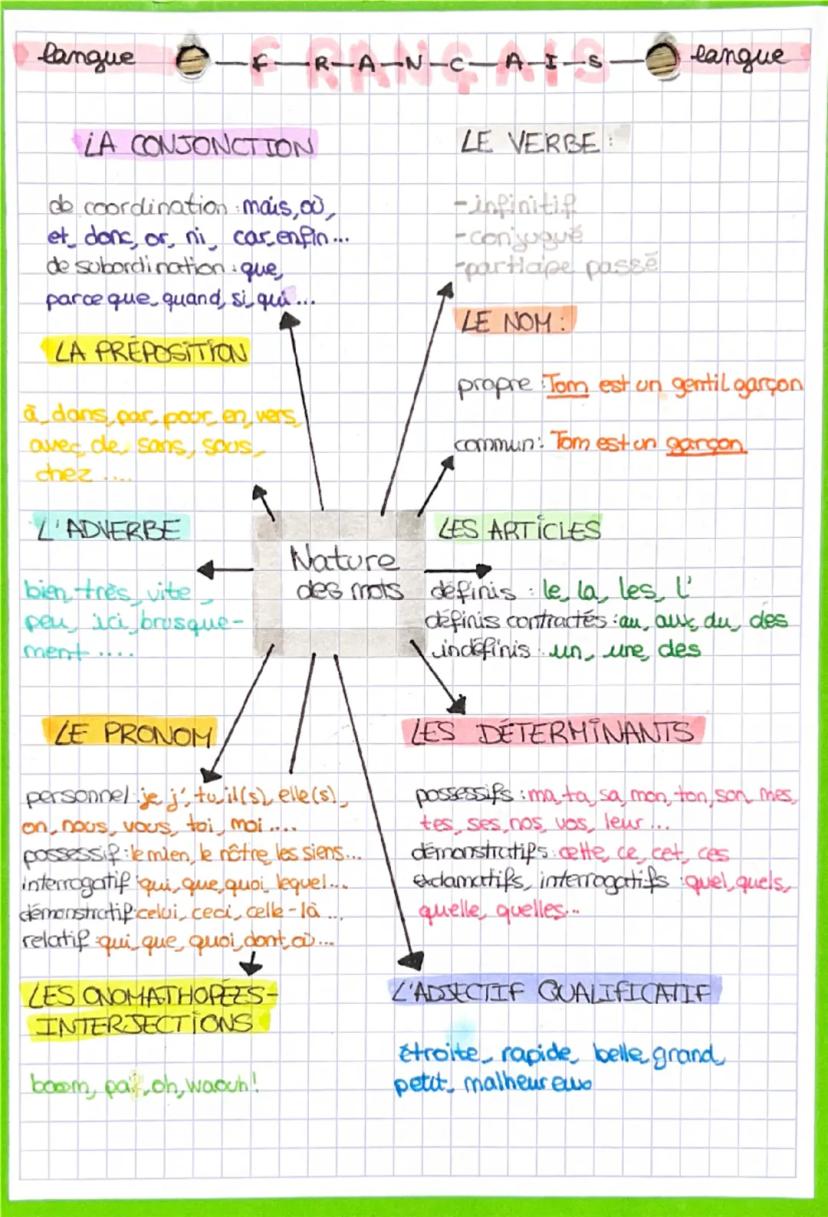 langue F-R-A-N-C-A-I-S langue
FRANÇAIS
LA CONJONCTION
de coordination : mais, où,
et, donc, or, ni, car, enfin...
de subordination : que,
parce que, quand, si, qui...
LE VERBE :
-infinitif
-conjugué
-participe passé
LE NOM :
propre : Tom est un gentil garçon
commun : Tom est un garçon
LA PRÉPOSITION
à, dans, par, pour, en, vers,
avec, de, sans, sous,
chez ....
L'ADVERBE
bien, très, vite,
peu, ici, brusque-
ment ....
Nature
des mots
LES ARTICLES
définis : le, la, les, l'
définis contractés : au, aux, du, des
indéfinis : un, une, des
LE PRONOM
personnel : je, j', tu, il(s), elle(s),
on, nous, vous, toi, moi....
possessif : le mien, le nôtre, les siens...
interrogatif : qui, que, quoi, lequel...
démonstratif : celui, ceci, celle-là ...
relatif : qui, que, quoi, dont, où...
LES DÉTERMINANTS
possessifs : ma, ta, sa, mon, ton, son, mes,
tes, ses, nos, vos, leur...
démonstratifs : cette, ce, cet, ces
exclamatifs, interrogatifs : quel, quels,
quelle, quelles...
LES ONOMATHOPÉES-
INTERJECTIONS
boom, paf, oh, waouh!
L'ADJECTIF QUALIFICATIF
étroite, rapide, belle, grand,
petit, malheureux